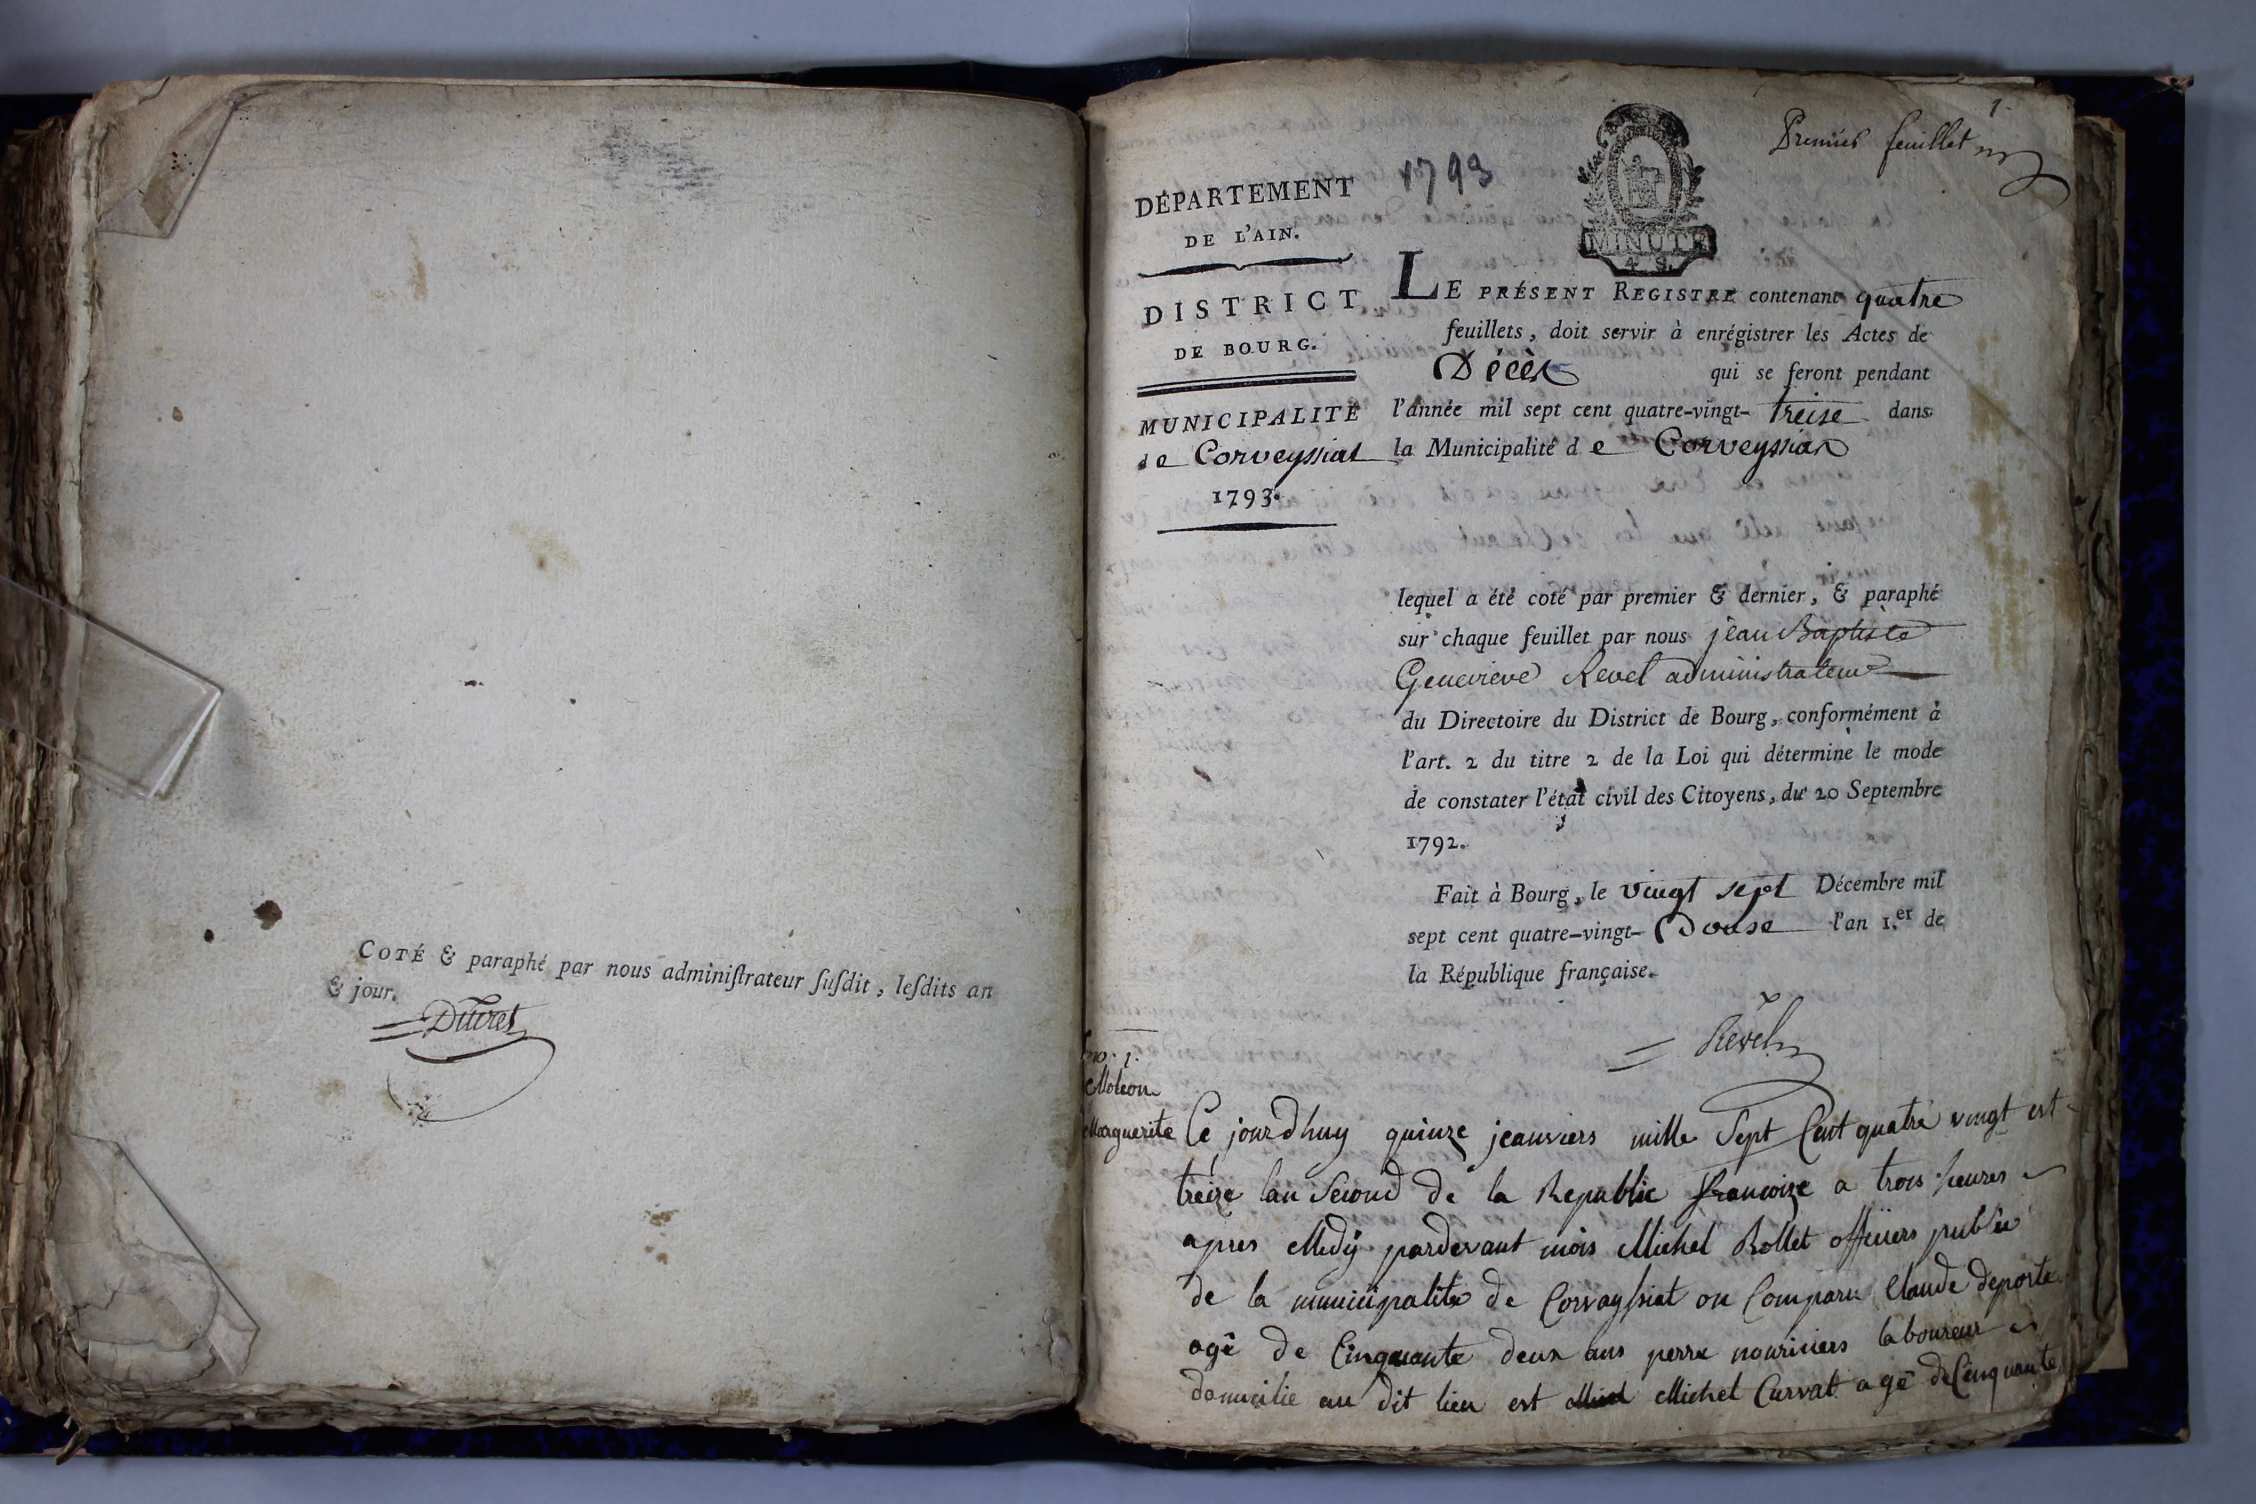 COTÉ & paraphé par nous adminiſtrateur ſuſdit, leſdits an
& jour.
Ducret
1.
Premier feuillet
1793
MINUTE
4. S.
DÉPARTEMENT
DE L'AIN.
DISTRICT
DE BOURG.
MUNICIPALITÉ
de Corveyssiat
1793.
LE PRÉSENT REGISTRE contenant quatre
feuillets, doit servir à enrégistrer les Actes de
Décès qui se feront pendant
l'année mil sept cent quatre-vingt- treise dans
la Municipalité de Corveyssiat
lequel a été coté par premier & dernier, & paraphé
sur chaque feuillet par nous jean Baptiste
Genevieve Revel administrateur
du Directoire du District de Bourg, conformément à
l'art. 2 du titre 2 de la Loi qui détermine le mode
de constater l'état civil des Citoyens, du 20 Septembre
1792.
Fait à Bourg, le vingt sept Décembre mil
sept cent quatre-vingt- Douse l'an 1.er de
la République française.
Revel
no. 1.
Moleon
Marguerite
Ce jourdhuy quinze jeanviers mille Sept Cent quatre vingt est
treize lan Second de la Republic francoize a trois heures
apres Medÿ pardevant mois Michel Rollet officiers public
de la municipalite de Corvayssiat on Comparu Claude deporte
agê de Cinquante deux ans perre nouriciers laboureur
domicilie au dit lieu est Michel Curvat agê de Cinquante